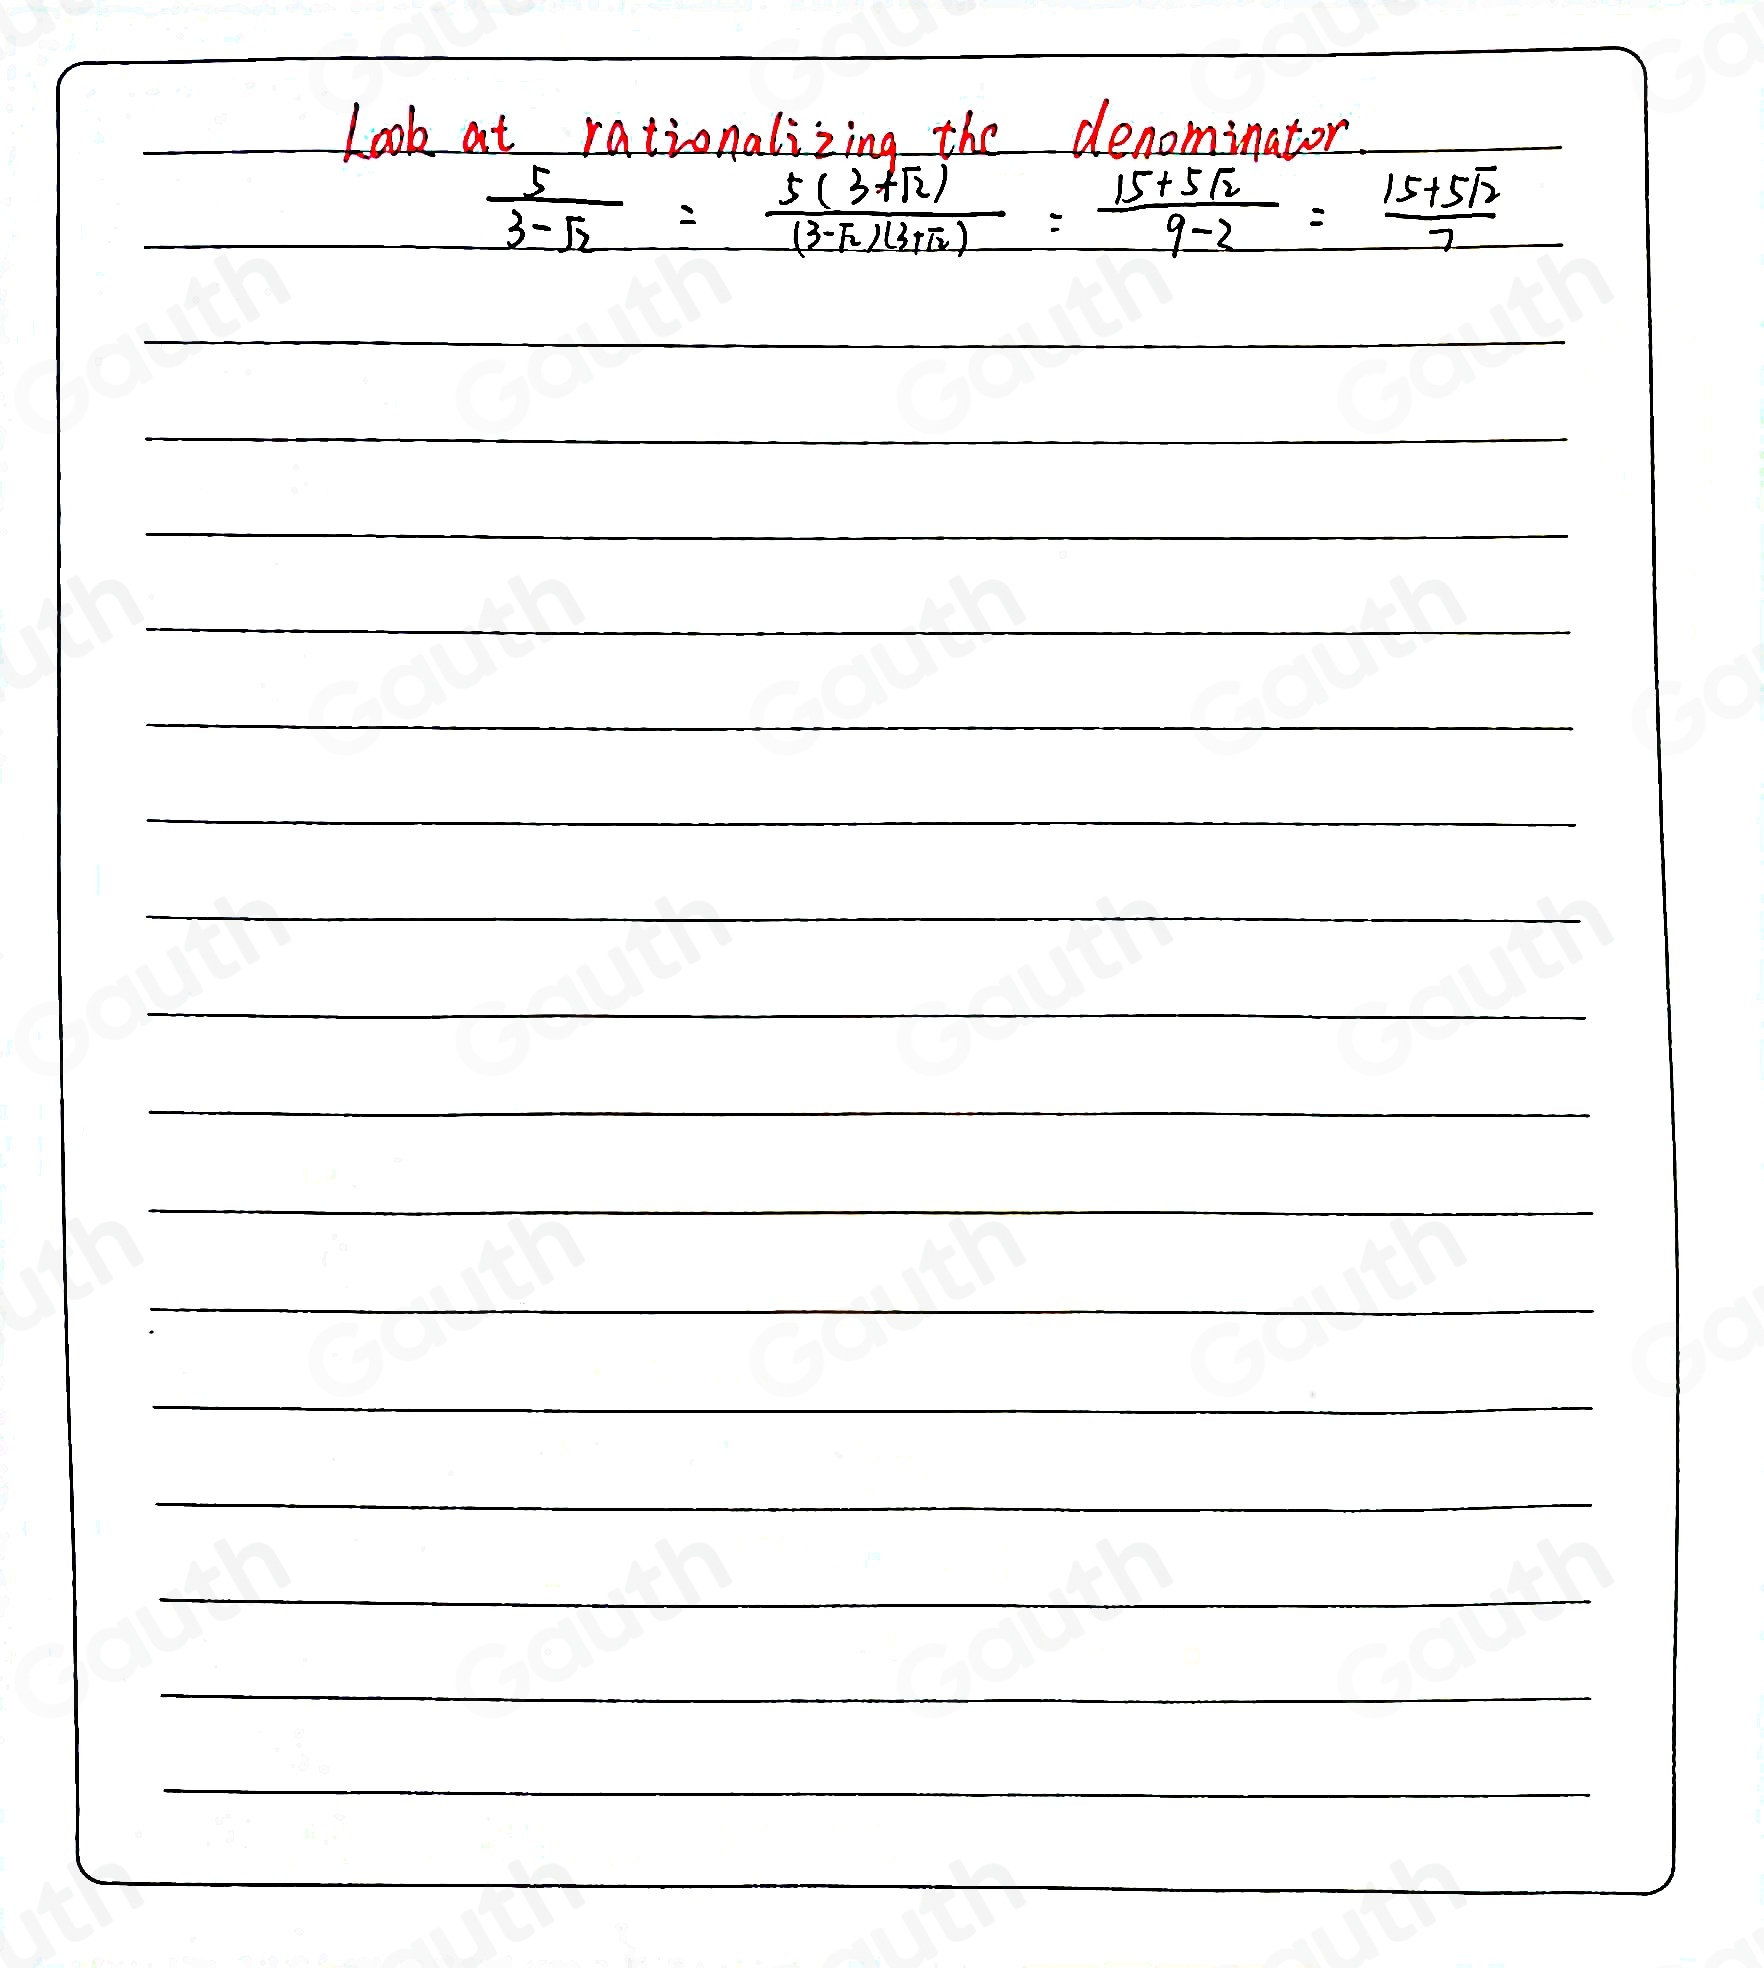 Look at rationalizing the denominator.
5/(3-√2) = 5(3+√2)/((3-√2)(3+√2)) = (15+5√2)/(9-2) = (15+5√2)/7